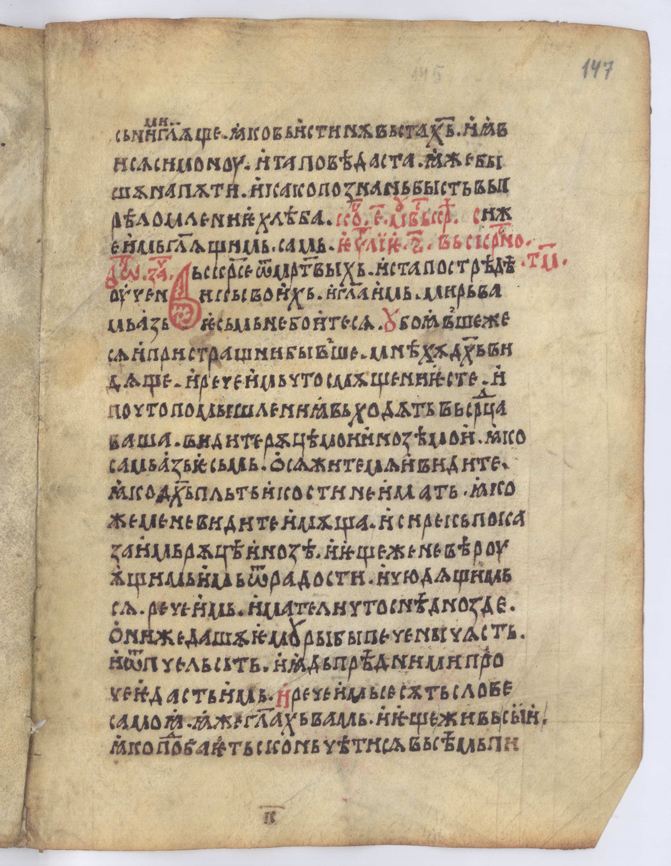 147
сьнимигл҃ѧще. ꙗ҆ко въи҆стинѫ въстах҃ъ. и҆ ꙗ҆в
и сѧ симоноу. и҆ та повѣдаста. ꙗ҆же бы
шѫ на пѫти. и҆ како познань бысть въ п
рѣломлени ѥ҆ хлѣба. сиж
е и҆мь гл҃ѫщимь. самь.
въскр҃се ѿ мрт҃выхъ. и҆ ста постѣдѣ
оу҆чен и ісъ свои҆хъ. и҆ гл҃а и҆мь. мирь ва
мь азь ѥ҆смь не бои҆те сѧ. Ꙋбоꙗ҆вше же
сѧ и҆ пристрашни бывше. мнѣхѫ дх҃ъ ви
дѧще. и҆ рече и҆мь что смѫщени ѥ҆сте. и҆
по что помышлениꙗ҆ въходѧть въ ср҃ца
ваша. видите рѫцѣ мои и҆ нозѣ мои҆. ꙗ҆ко
самь азь ѥ҆смь. ѡ҆сѧжите мѧ и҆ видите.
ꙗ҆ко дх҃ъ пльти и҆ кости не и҆мать. ꙗ҆ко
же мене видите и҆мѫща. и҆ си рекь пока
за и҆мь рѫцѣ и҆ нозѣ. и҆ ѥ҆ще же не вѣроу
ѫ҆щимь и҆мь ѿ радости. и҆ чюдѧщимь
сѧ. рече и҆мь. и҆мате ли что снѣдно зде.
ѻ҆ни же дашѫ ѥ҆мꙋ рыбы печены чѧсть.
и҆ ѿ пчель сьть. и҆ ꙗ҆дь прѣд ними про
чеѥ҆ дасть и҆мь. и҆ рече и҆мь се сѫть слове
са моꙗ҆. ꙗ҆же гл҃ахъ вамь. и҆ ѥ҆ще живъ сы и҆.
ꙗ҆ко подобаѥ҆ть скончѣти сѧ въсѣмь пи